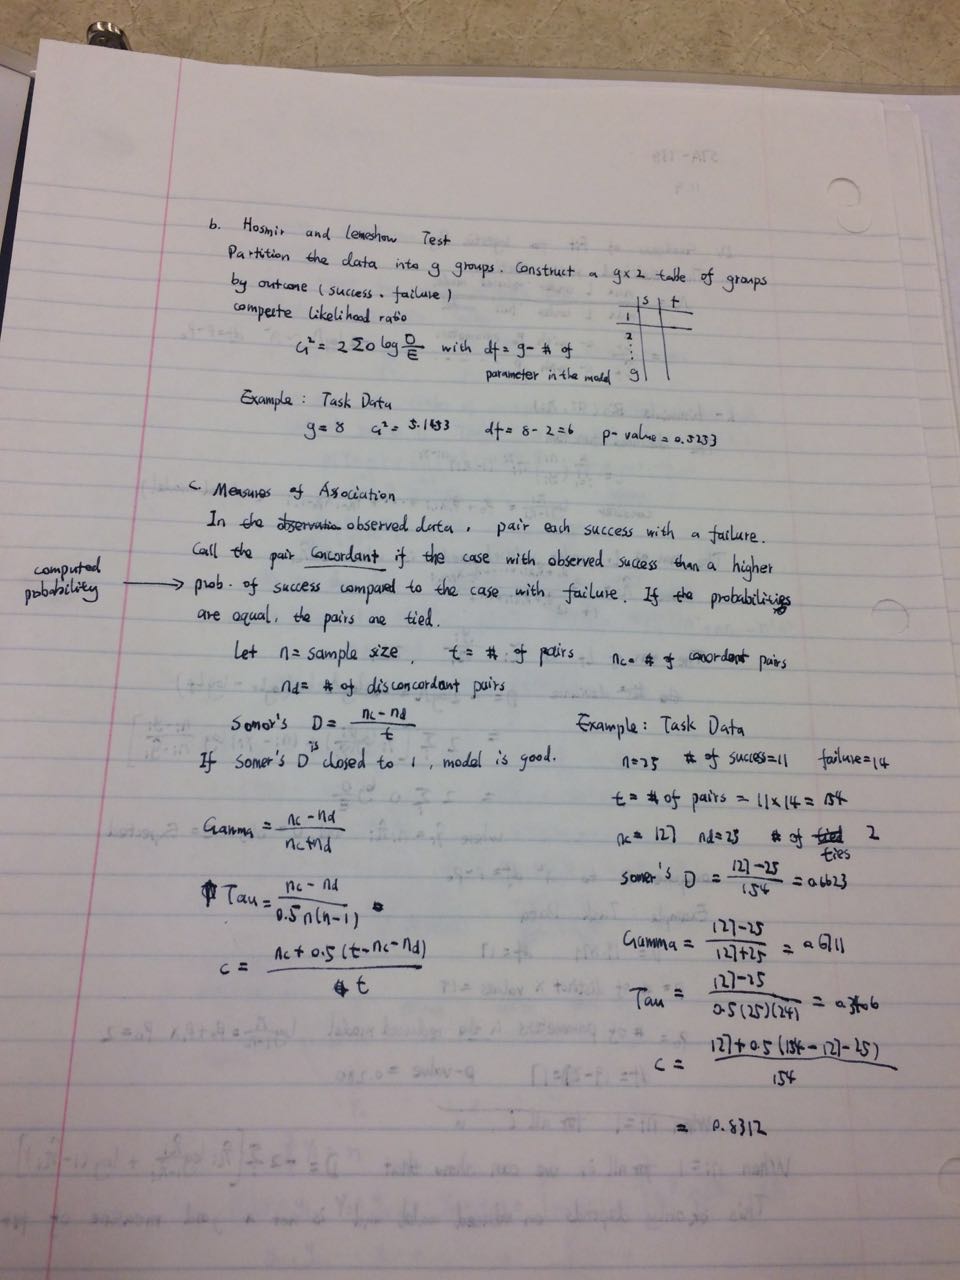 b. Hosmir and Lemeshow Test
Partition the data into g groups. Construct a g×2 table of groups
by outcome (success, failure)
compute likelihood ratio
G² = 2 ΣO log O/E with df = g - # of
parameter in the model
S f
1
2
⋮
g
Example : Task Data
g = 8 G² = 5.1453 df = 8 - 2 = 6 p-value = 0.5253
c. Measures of Association
In the observed data, pair each success with a failure.
Call the pair concordant if the case with observed success than a higher
computed
probability →
prob. of success compared to the case with failure. If the probabilities
are equal, the pairs are tied.
Let n = sample size, t = # of pairs nc = # of concordant pairs
nd = # of disconcordant pairs
Somor's D = (nc - nd)/t
If Somer's D is closed to 1, model is good.
Gamma = (nc - nd)/(nc + nd)
Tau = (nc - nd)/(0.5 n(n-1))
c = (nc + 0.5 (t - nc - nd))/t
Example : Task Data
n = 25 # of success = 11 failure = 14
t = # of pairs = 11 × 14 = 154
nc = 127 nd = 25 # of ties 2
Somer's D = (127-25)/154 = 0.6623
Gamma = (127-25)/(127+25) = 0.6711
Tau = (127-25)/(0.5(25)(24)) =
c = (127 + 0.5 (154 - 127 - 25))/154
= 0.8312